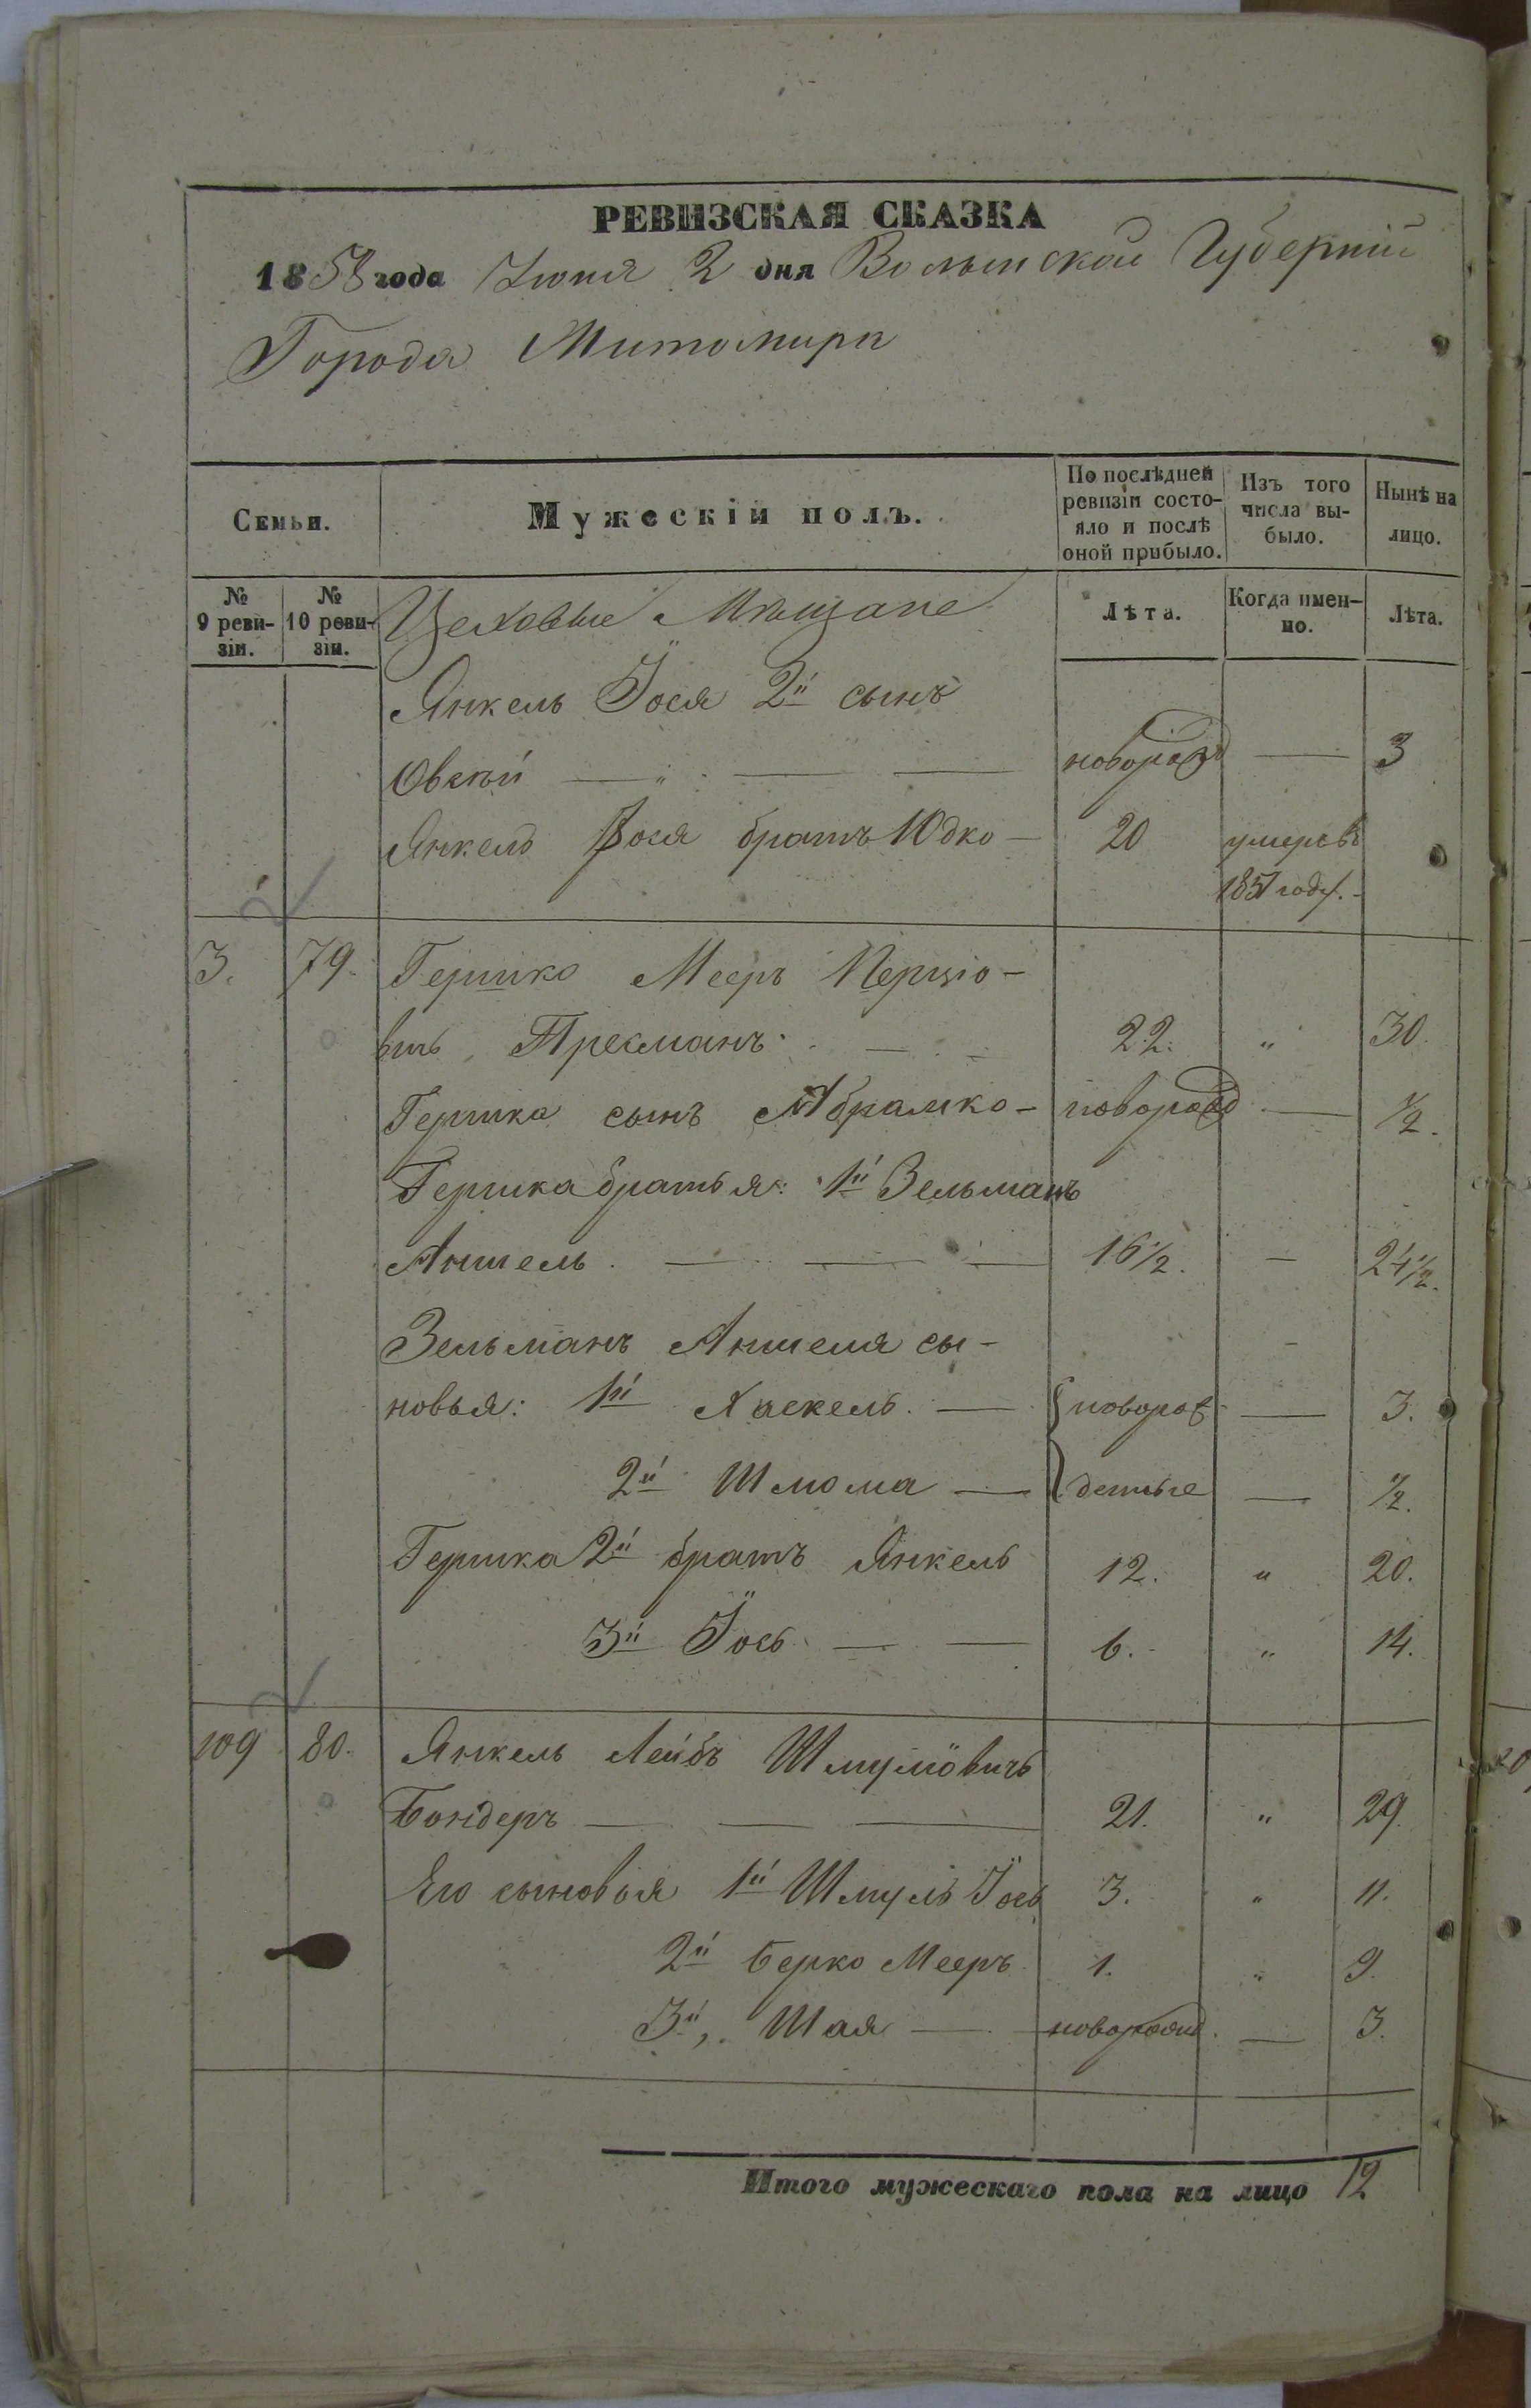 РЕВИЗСКАЯ СКАЗКА
1858 года Іюня 2 дня Волынской Губерніи
Города Житомира
Семьи. Мужескій полъ. По послѣдней ревизіи состояло и послѣ оной прибыло. Изъ того числа выбыло. Нынѣ на лицо.
№ 9 ревизіи. № 10 ревизіи. Цеховые Мѣщане Лѣта. Когда именно. Лѣта.
Янкель Іося 2й сынъ
Овсѣй — новорожд — 3
Янкель Іося братъ Юдко — 20 умеръ въ
1857 году.
3. 79. Гершко Мееръ
вичь 22. " 30.
Гершка сынъ Абрамко - новорожд — 1/2.
Гершка братья: 1й Зельманъ
Аншель. — 16 1/2. — 24 1/2.
Зельманъ Аншеля сы-
новья: 1й Хаскель. — новорож — 3.
2й Шлома — денные — 1/2.
Гершка 2й братъ Янкель 12. " 20.
3й Іось — 6. " 14.
109 80. Янкель Лейбъ Шмулiовичъ
Бондеръ — 21. " 29.
Его сыновья 1й Шмуль Іось 3. " 11.
2й Берко Мееръ 1. " 9.
3й, Шая — новорожд. — 3.
Итого мужескаго пола на лицо 12